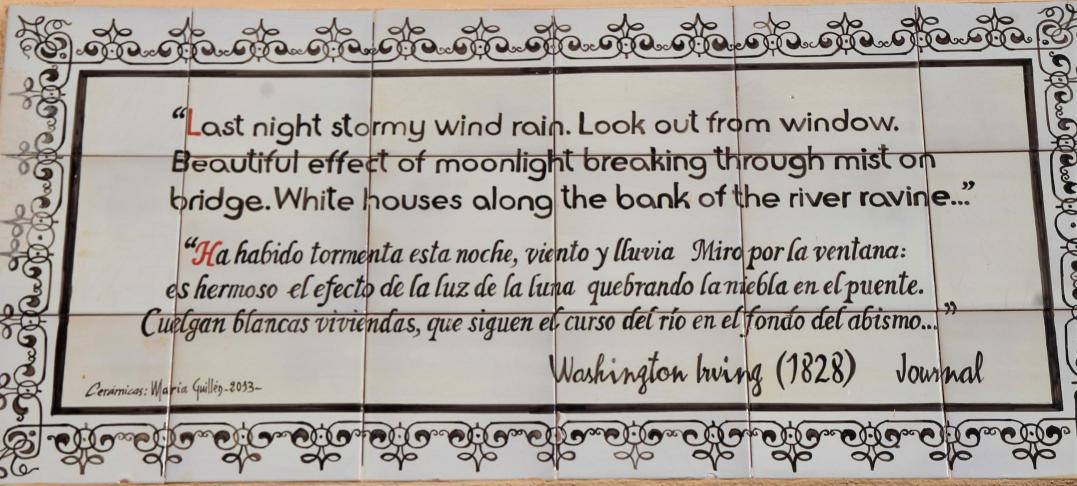 “Last night stormy wind rain. Look out from window.
Beautiful effect of moonlight breaking through mist on
bridge. White houses along the bank of the river ravine...”
“Ha habido tormenta esta noche, viento y lluvia Miro por la ventana:
es hermoso el efecto de la luz de la luna quebrando la niebla en el puente.
Cuelgan blancas viviendas, que siguen el curso del río en el fondo del abismo...”
Washington Irving (1828) Journal
Cerámicas: María Guillén-2013-